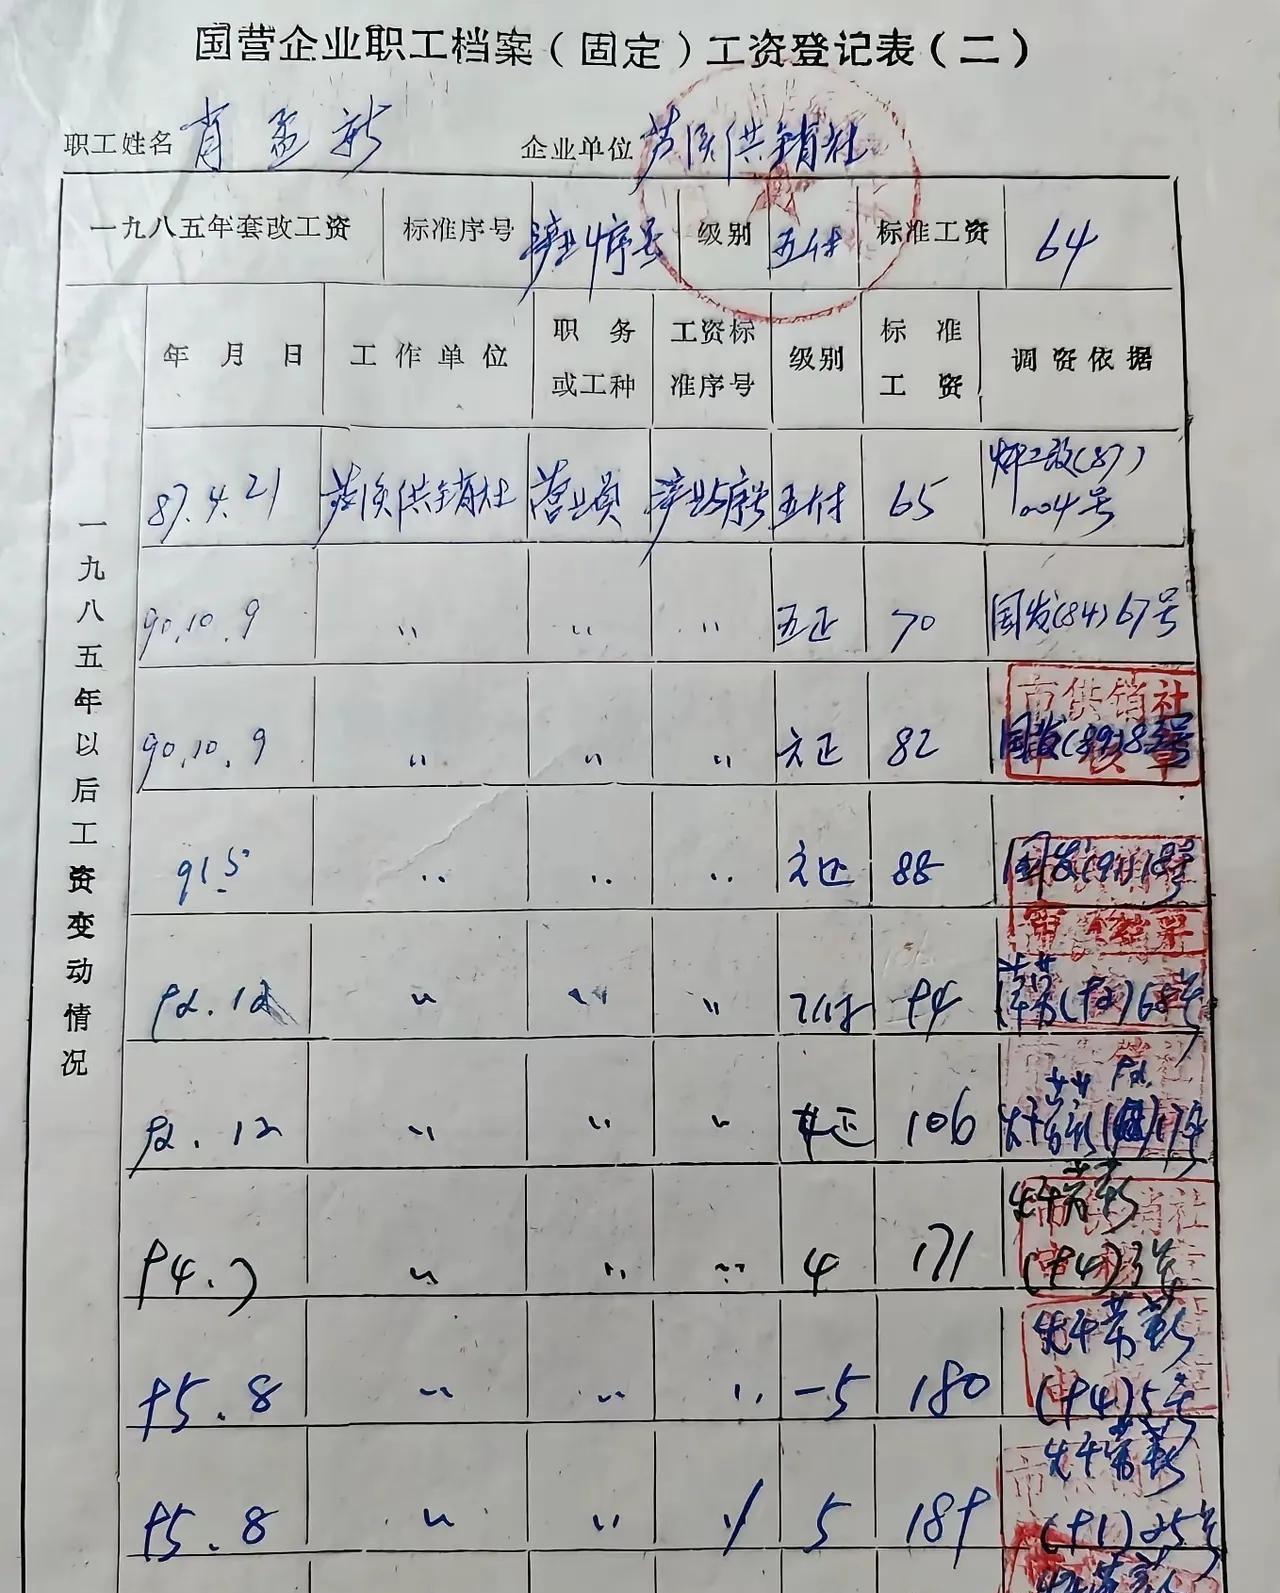 国营企业职工档案（固定）工资登记表（二）
职工姓名 肖孟新 企业单位 芦溪供销社
一九八五年套改工资 标准序号 序号 级别 五付 标准工资 64
年月日 工作单位 职务或工种 工资标准序号 级别 标准工资 调资依据
一九八五年以后工资变动情况
87.4.21 芦溪供销社 营业员 序号 五付 65 (87) 004号
90.10.9 〃 〃 〃 五正 70 国发(84)67号
90.10.9 〃 〃 〃 六正 82 国发(89)83号
市供销社
91.5 〃 〃 〃 六正 88 国发(91)18号
92.12 〃 〃 〃 七付 94 (92)68号
92.12 〃 〃 〃 七正 106 17号
94.7 〃 〃 〃 4 171 (94)3号
95.8 〃 〃 〃 -5 180 (94)5号
95.8 〃 〃 〃 5 189 (91)25号